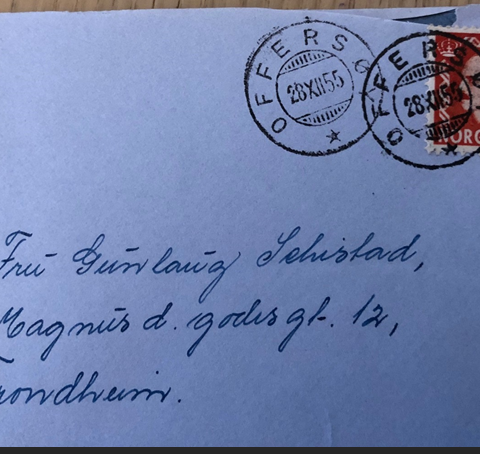 OFFERSØ
28XII55
OFFERSØ
28XII55
NORG
Frú Gúnlaúg Schistad,
Magnús d. godesgt. 12,
Trondheim.